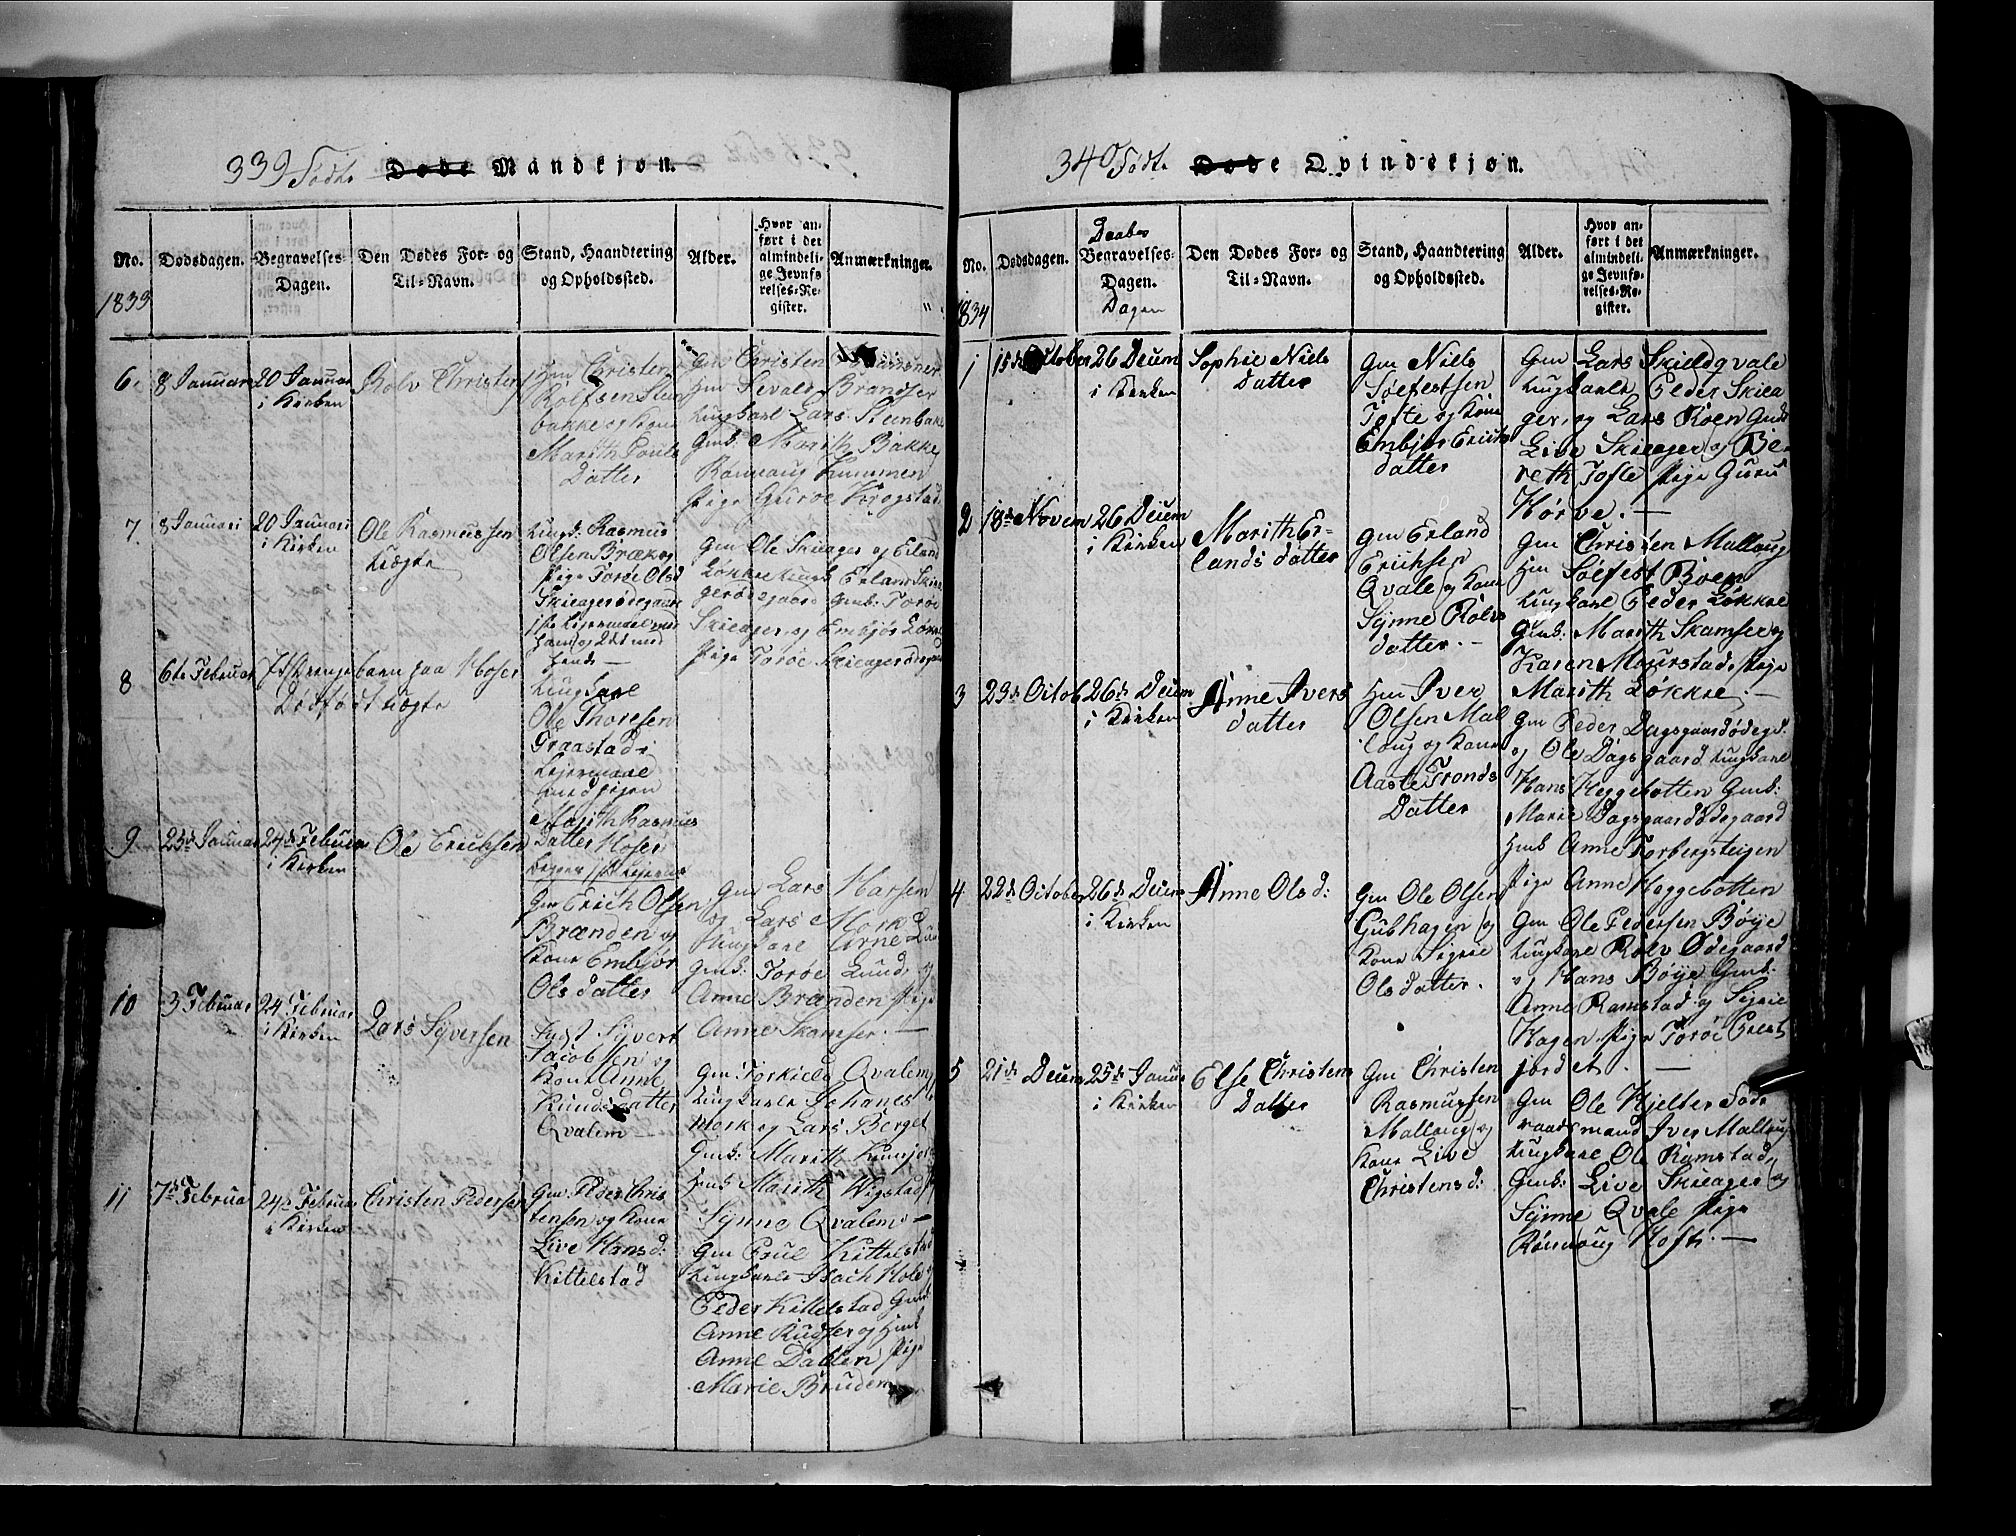 339 Fødte Døde Mandkjøn.
No.
Dødsdagen.
Begravelses-
Dagen.
Den Dødes For- og
Til-Navn.
Stand, Haandtering
og Opholdssted.
Alder.
Hvor an-
ført i det
almindeli-
ge Jevnfø-
relses-Re-
gister.
Anmærkninger.
1833
6
8 Januari
20 Januar
i Kirken
Rolv Christens
Gm Christen
Rolfsen Stein
bakke og Kone
Marith Pouls
Datter
Gm Christen
Hm Sevald Brandser
Ungkarl Lars Steinbakke
Gmk: Marith Bakke
Rønnaug Lummen
Pige Guroe Krogstad
7
8 Januari
20 Januari
i Kirken
Ole Rasmussen
Uægte
Ungk: Rasmus
Olsen Bræk og
Pige Toroe Olsd
Skieagerødegaard
Gm Ole Skieager og Erland
Løkke Ungk Erland Skiea
gerødegaard Gmk: Toroe
Skieager og Embjør Løkke
Pige Toroe Skieagerødegaard
8
6te Februar
Et Drenge barn paa Moser
Dødfødt uægte
Ungkarl
Ole Thoresen
Fraastad
Leiermaal
med pigen
Marith Rasmus
Datter Moser
9
23de Januar
24de Februar
i Kirken
Ole Erichsen
Gm Erich Olsen
Brænden og
Kone Embjør
Olsdatter
Gm Lars Harsem
og Lars Mork
Ungkarl Arne Lun
Gmk: Toroe Lunde og
Anne Brænden Pige
Anne Skamser. —
10
3 Februar
24 Februar
i Kirken
Lars Syversen
Syvert
Jacobsen og
Kone Anne
Knudsdatter
Qvalem —
Gm Torkield Qvalem
Ungkarle Johanes
Mork og Lars Berget
Gmk: Marith
Marith Wigstad
Synne Qvalem —
11
7de Februar
24de Februar
i Kirken
Christen Pedersen
Gm: Peder Chris
tensen og Kone
Live Hansd:
Kittelstad
Gm Poul Kittelstad
Ungkarle Isach Hole
Peder Kittelstad Gmk
Anne Rudser og Hmk
Anne Dalen Pige
Marie Bruden
340 Fødte Døde Qvindekjøn.
No.
Dødsdagen.
Daabs
Begravelses-
Dagen.
Dagen
Den Dødes For- og
Til-Navn.
Stand, Haandtering
og Opholdssted.
Alder.
Hvor an-
ført i det
almindeli-
ge Jevnfø-
relses-Re-
gister.
Anmærkninger.
1834
1
15de October
26 Decem
i Kirken
Sophie Niels
datter
Gm Niels
Søefestsen
Tofte og Kone
Embjør Erichs
datter
Gm Lars Skieldqvale
Ungkarle Peder Skiea
ger, og Lars Roen Gmk
Live Skieager og Be
reth Tofte Pige Guru
Hørve. —
2
18de Novem
26 Decem
i Kirken
Marith Er-
lands datter
Gm Erland
Erichsen
Qvale og Kone
Synne Rolvs
datter. —
Gm Christen Mallaug
Hm Søefest Roen
Ungkarl Peder Løkke
Gmk: Marith Skamser og
Karen Maurstad Pige
Marith Løkke. —
3
23de Octob
26de Decem
i Kirken
Anne Ivers
datter
Hm Iver
Olsen Mal
laug og Kone
Aaste Tronds
Datter
Gm Peder Dagsgaardødegd.
og Ole Dagsgaard Ungkarl
Hans Heggebotten Gmk:
Marie Dagsgaardødegaard
Hmk Anne Torbergsteigen
Pige Anne Heggebotten
4
22de October
26de Decem
i Kirken
Anne Olsd:
Gm Ole Olsen
Gubhagen og
Kone Signe
Olsdatter.
Gm Ole Pedersen Bøye
Ungkarl Rolv Ødegaard
og Hans Bøye Gmk:
Anne Ramstad og Signe
Hagen Pige Toroe Prest
jordet. —
5
21de Decem
25de Januar
i Kirken
Else Christens
Datter
Gm Christen
Rasmussen
Mallaug og
Kone Live
Christensd:
Gm Ole Kjelter Fods
raadsmand Iver Mallaug
Ungkarl Ole Ramstad
Gmk: Live Skieager og
Synne Qvale Pige
Rønnaug Hofte. —